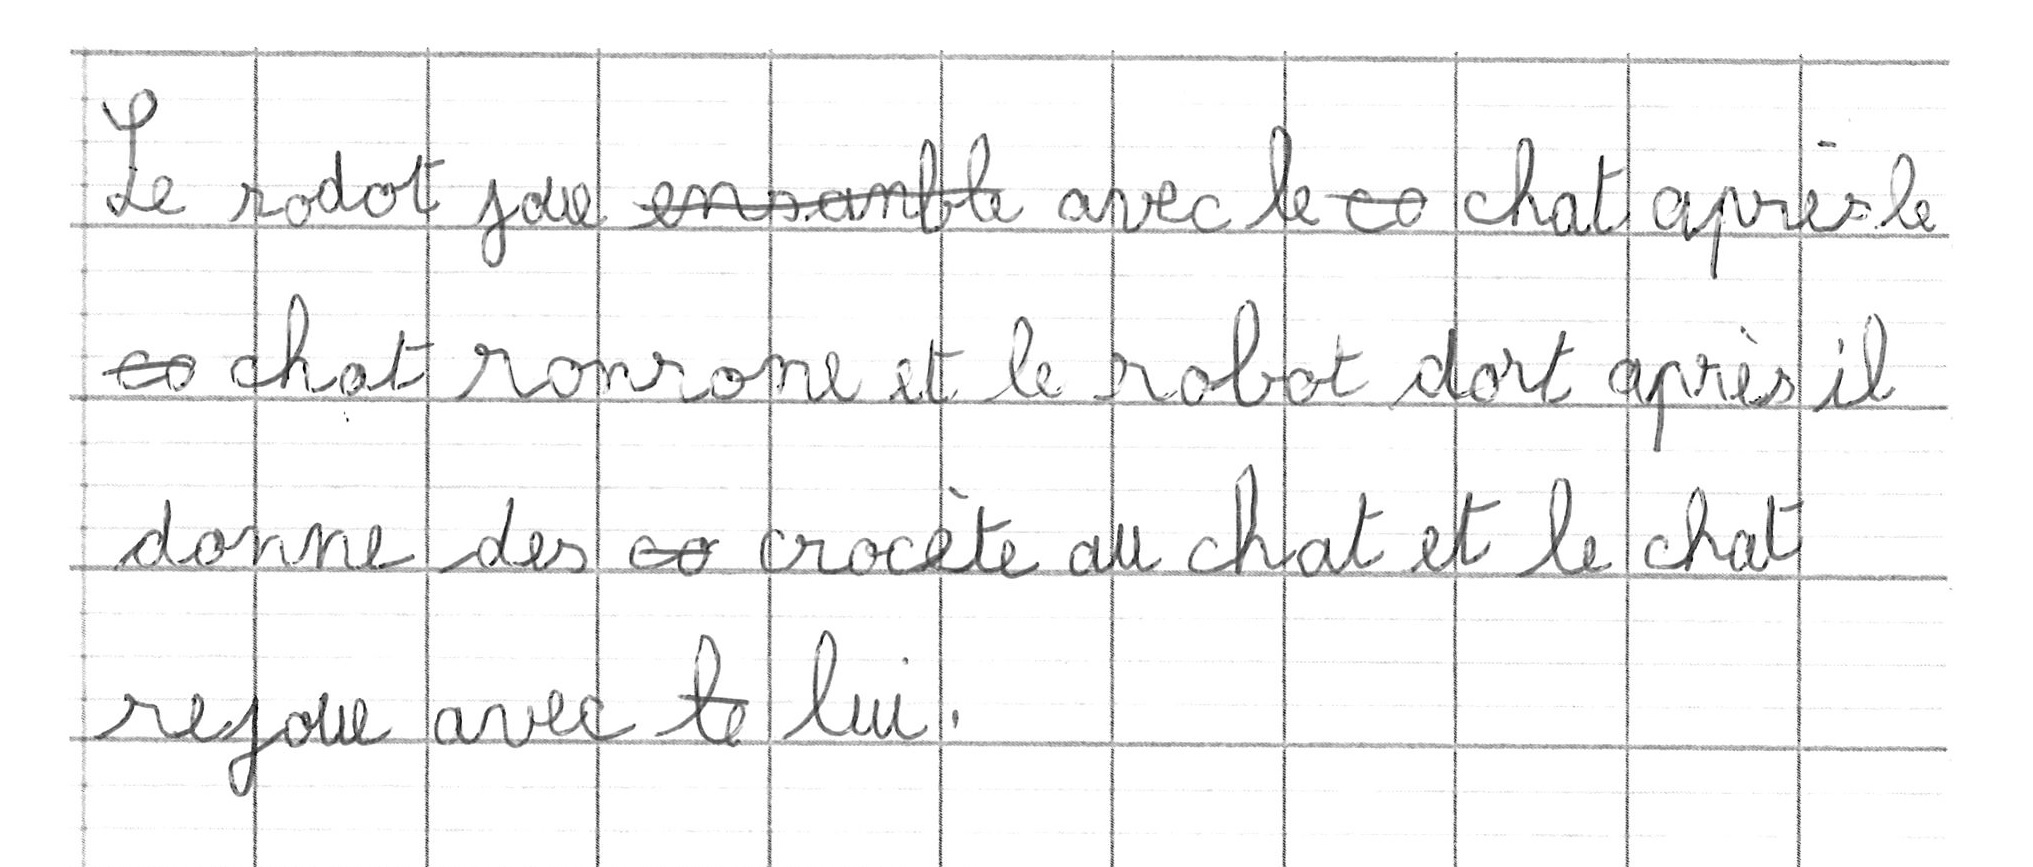 Le rodot joue ensamble avec le co chat après le
co chat ronrone et le robot dort après il
donne des co crocète au chat et le chat
rejoue avec le lui.